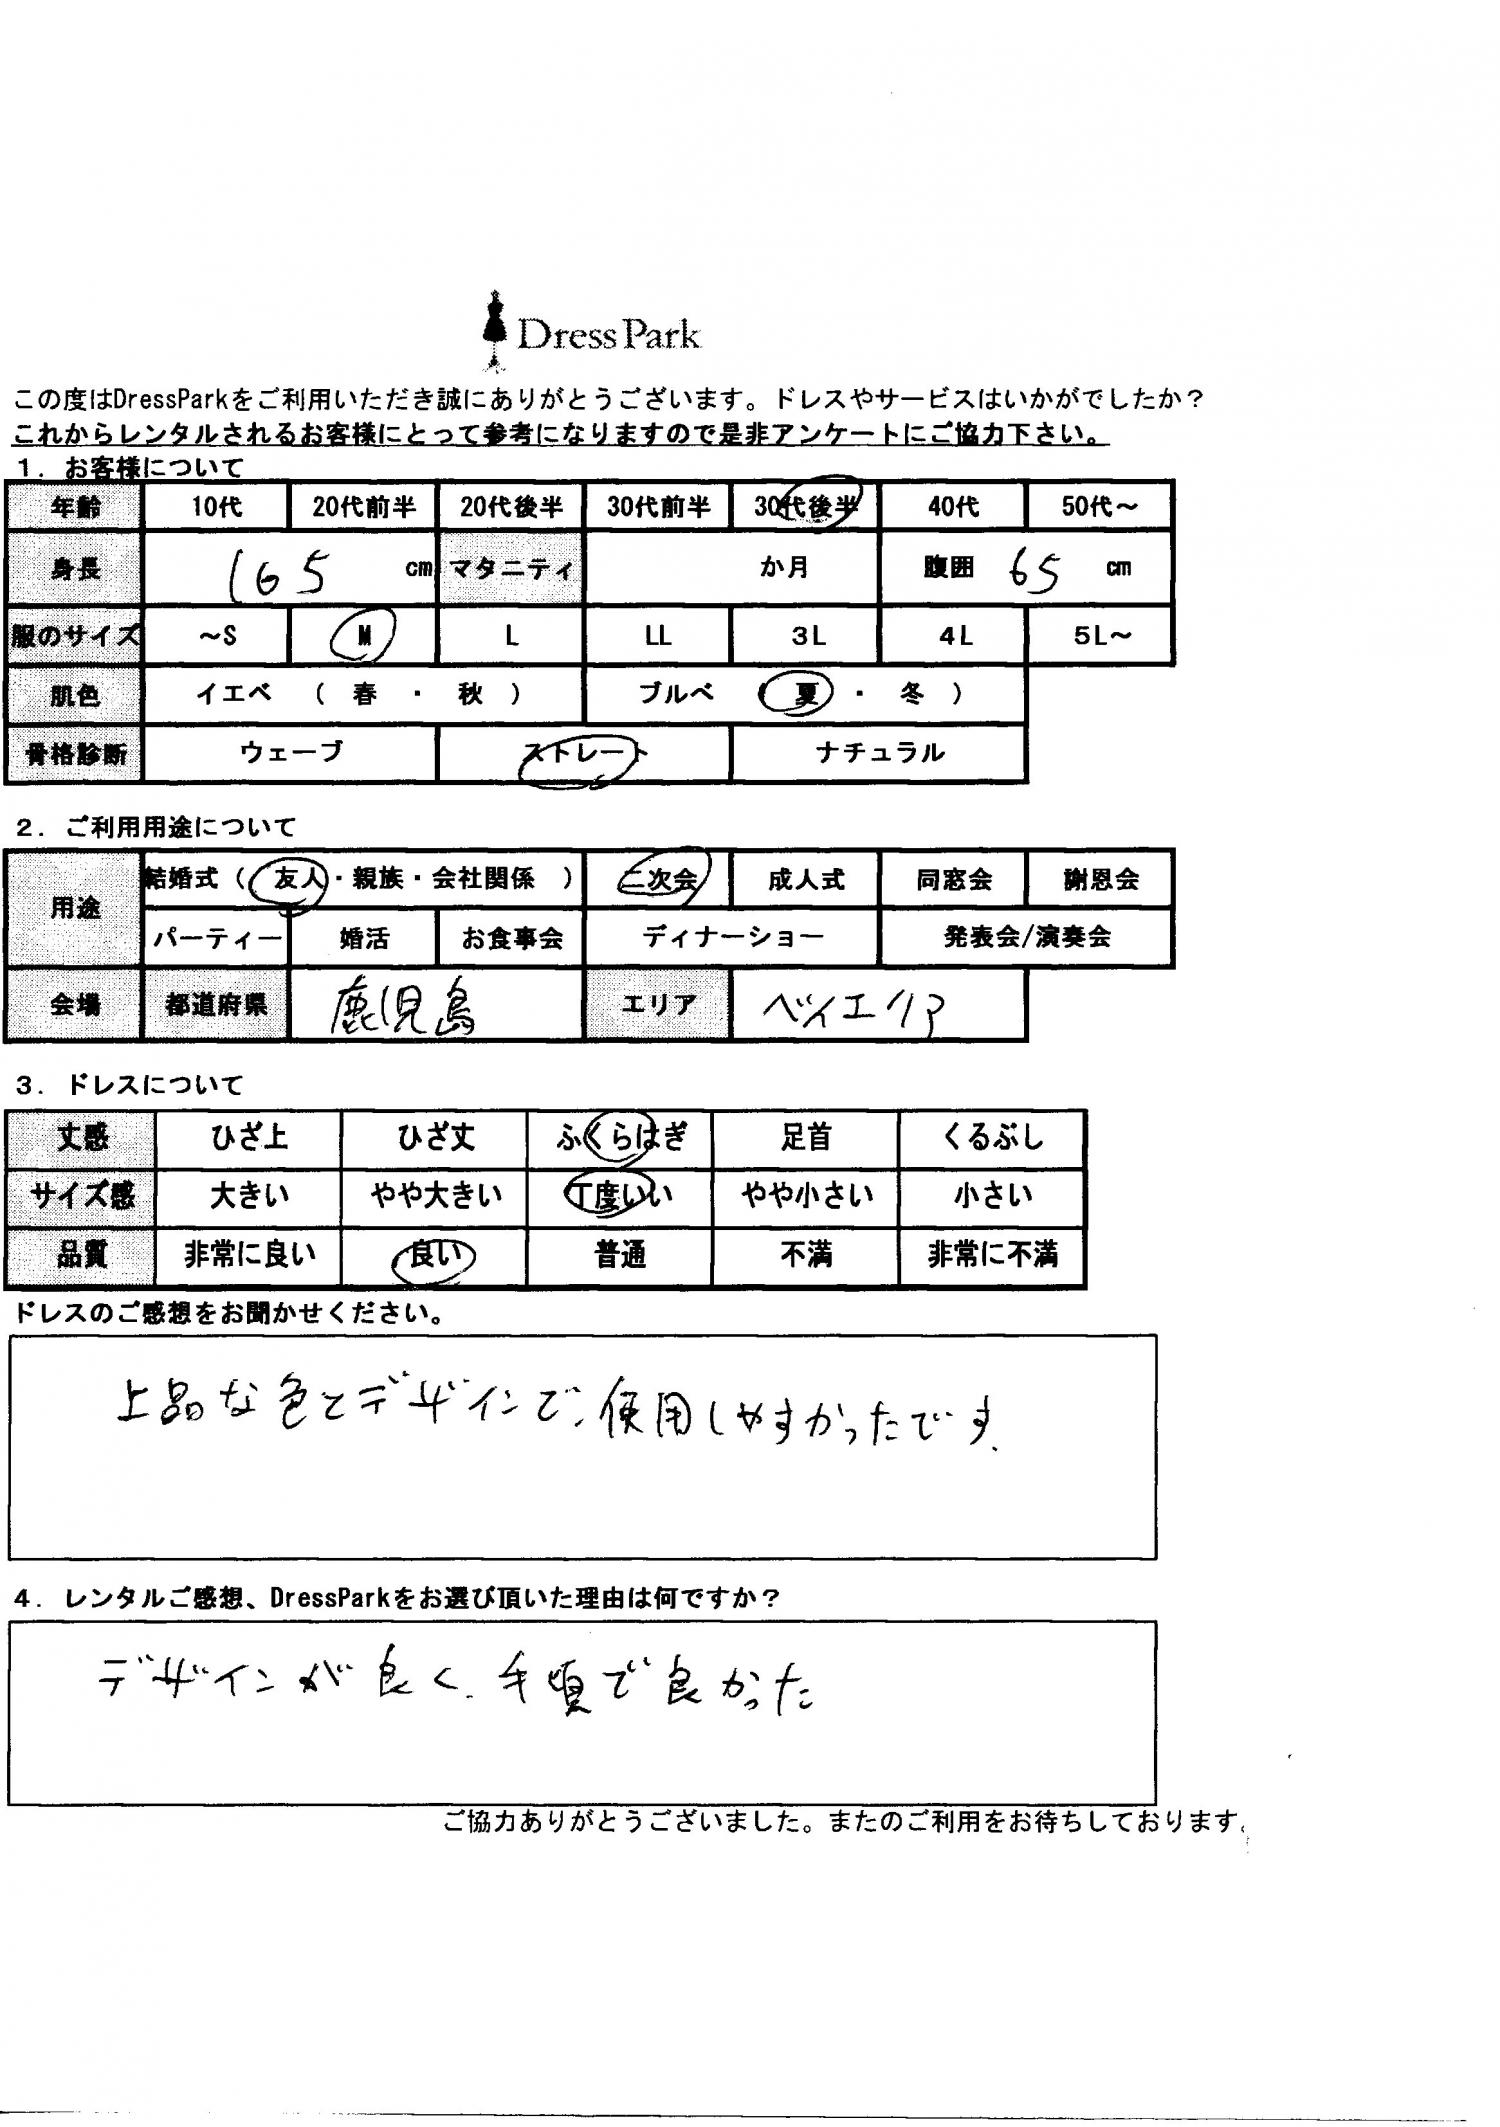 Dress Park
この度はDressParkをご利用いただき誠にありがとうございます。ドレスやサービスはいかがでしたか？
これからレンタルされるお客様にとって参考になりますので是非アンケートにご協力下さい。
１．お客様について
年齢 10代 20代前半 20代後半 30代前半 30代後半 40代 50代～
身長 165 cm マタニティ か月 腹囲 65 cm
服のサイズ ～S M L LL 3L 4L 5L～
肌色 イエベ （ 春 ・ 秋 ） ブルベ （ 夏 ・ 冬 ）
骨格診断 ウェーブ ストレート ナチュラル
２．ご利用用途について
用途 結婚式（ 友人・親族・会社関係 ） 二次会 成人式 同窓会 謝恩会
パーティー 婚活 お食事会 ディナーショー 発表会/演奏会
会場 都道府県 鹿児島 エリア ベイエリア
３．ドレスについて
丈感 ひざ上 ひざ丈 ふくらはぎ 足首 くるぶし
サイズ感 大きい やや大きい 丁度いい やや小さい 小さい
品質 非常に良い 良い 普通 不満 非常に不満
ドレスのご感想をお聞かせください。
上品な色とデザインで、使用しやすかったです。
４．レンタルご感想、DressParkをお選び頂いた理由は何ですか？
デザインが良く、手頃で良かった
ご協力ありがとうございました。またのご利用をお待ちしております。